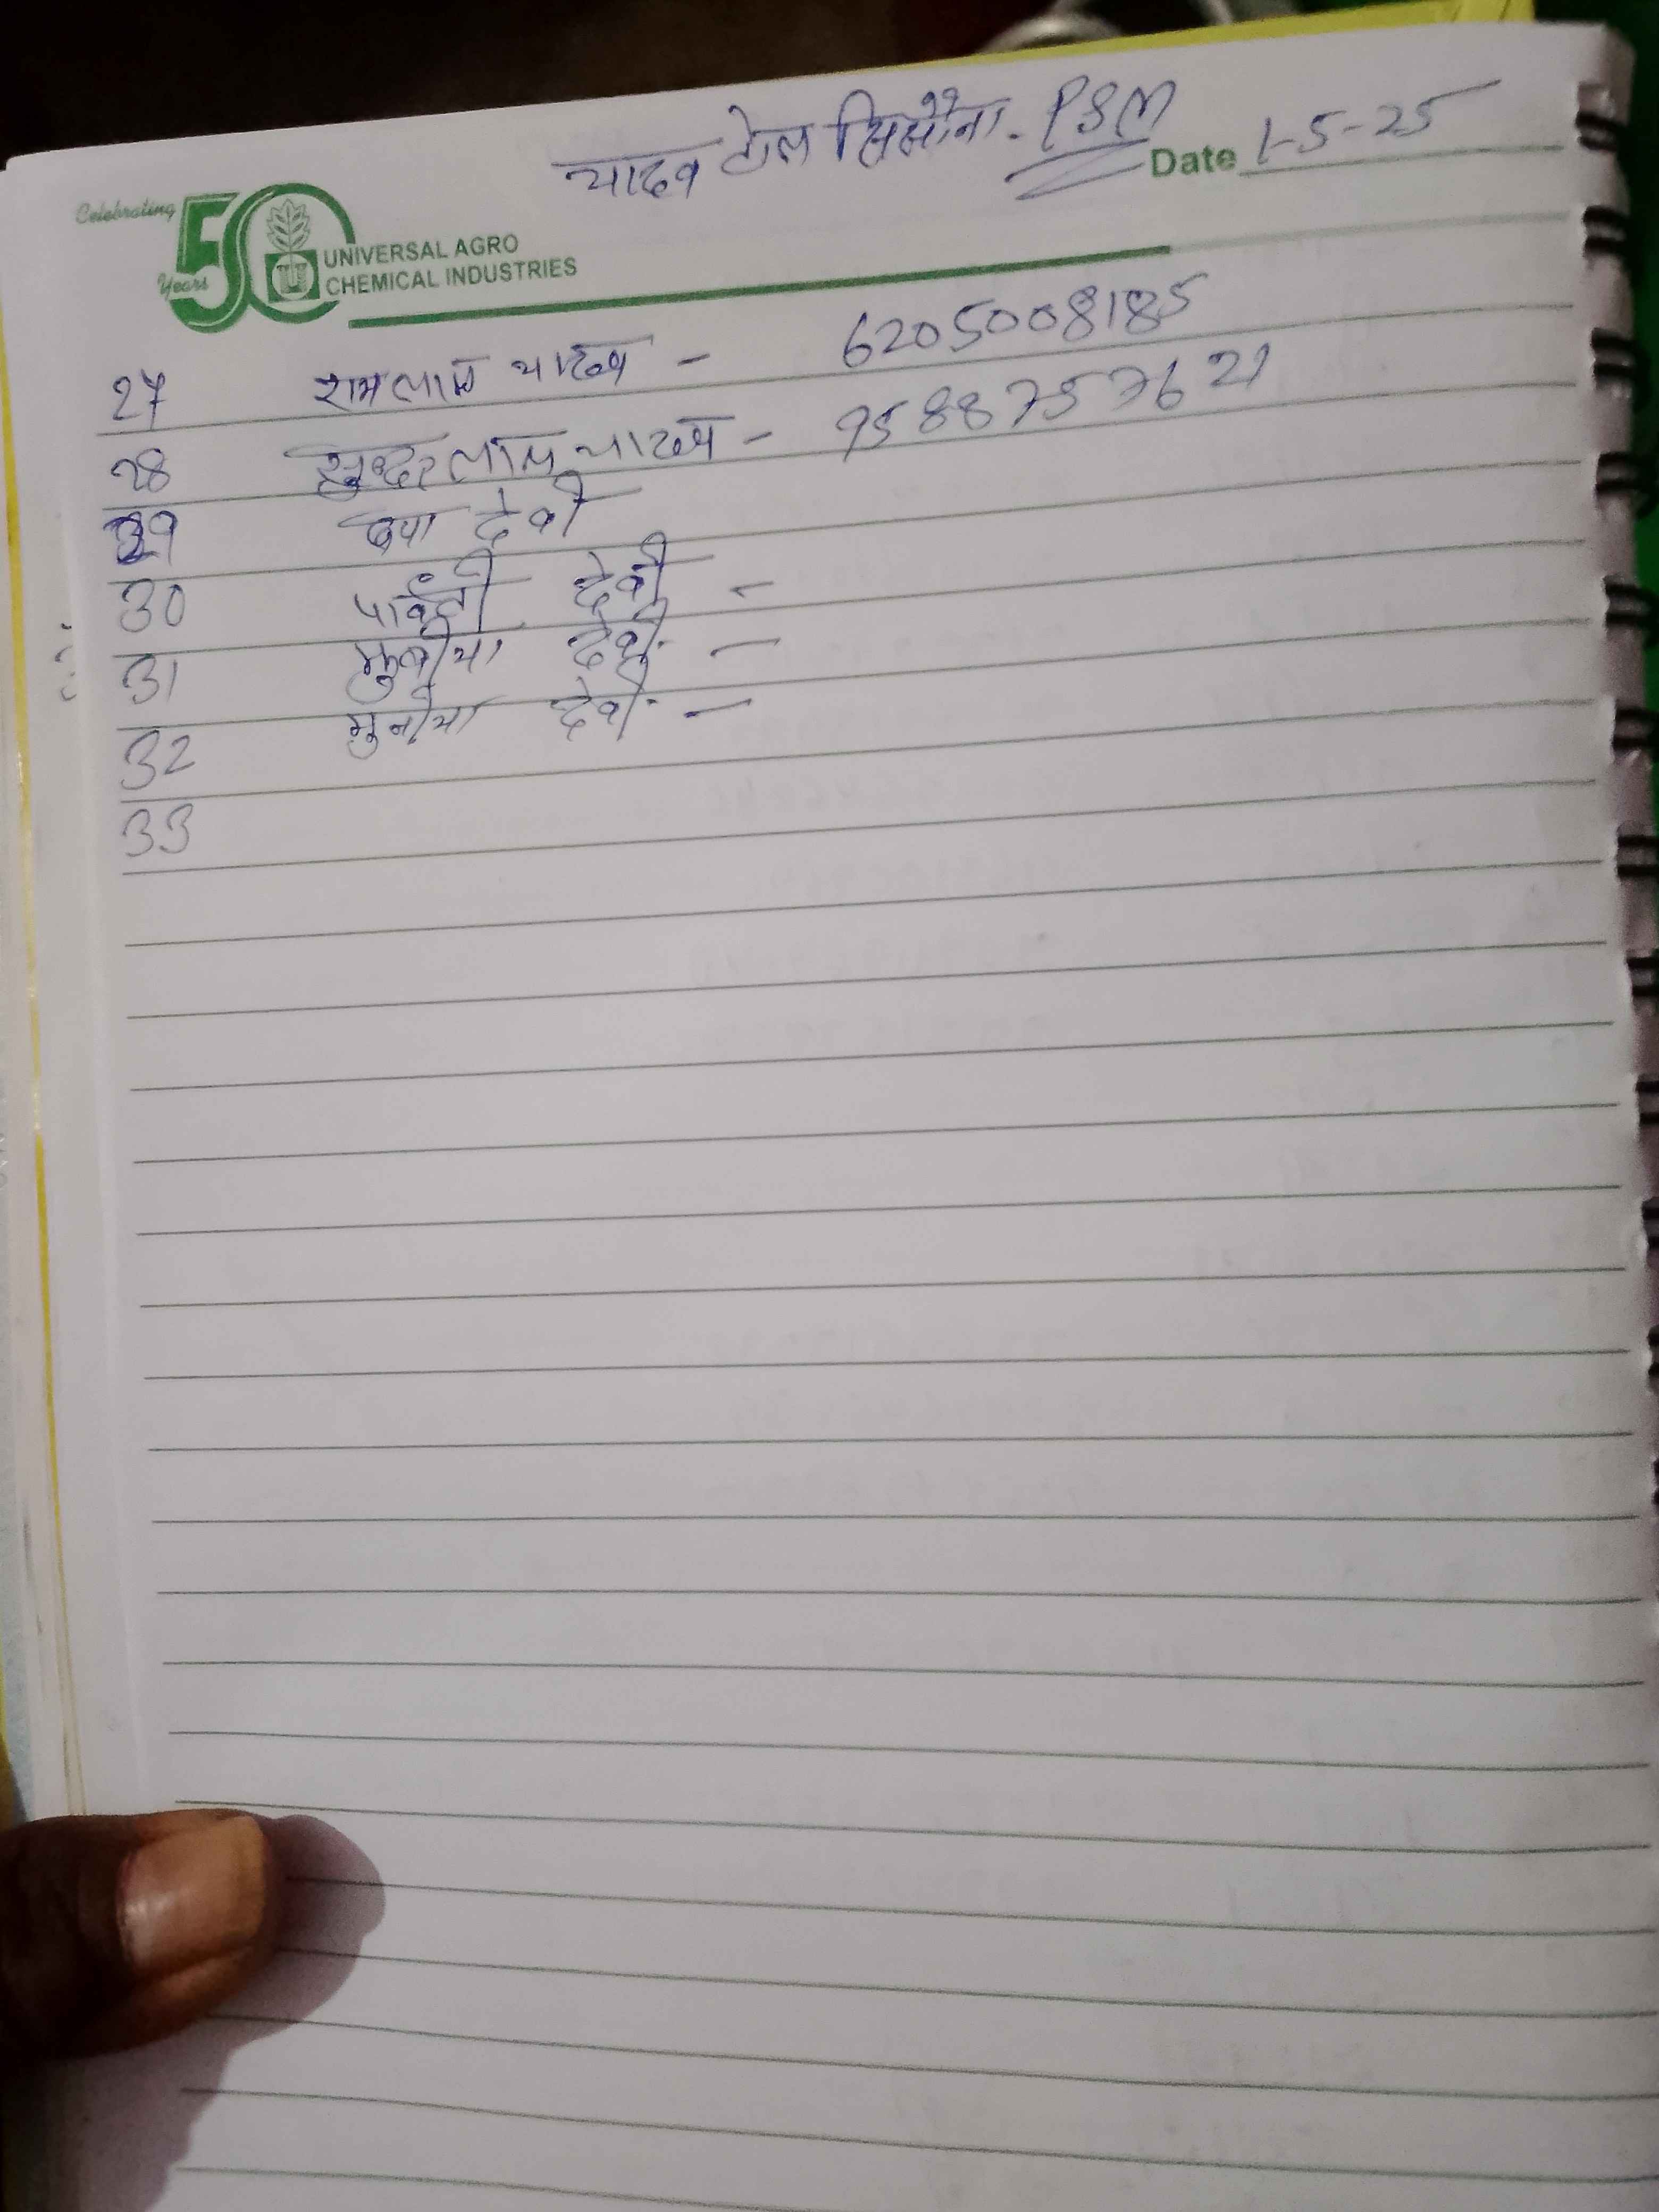 यादव टोल सिसौना - PSM
Date 1-5-25
Celebrating
50
Years
UNIVERSAL AGRO
CHEMICAL INDUSTRIES
27 रामलाल यादव - 6205008185
28 सुन्दरलाल यादव - 9588757621
29 देवी
30 पार्वती देवी -
31 देवी -
32 मुनीया देवी -
33